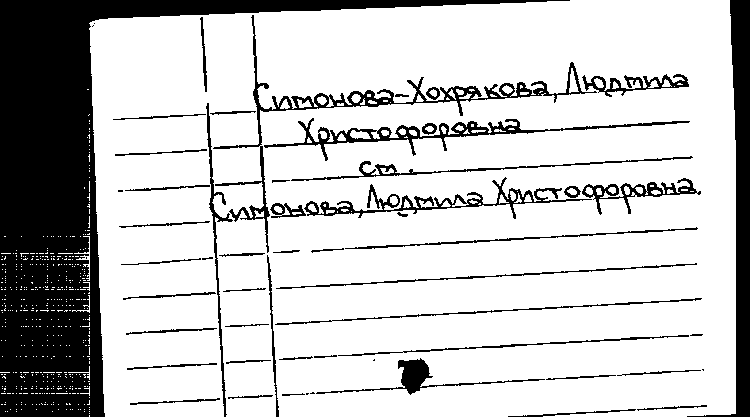 Симонова-Хохрякова, Людмила
Христофоровна
ст.
Симонова, Людмила Христофоровна.